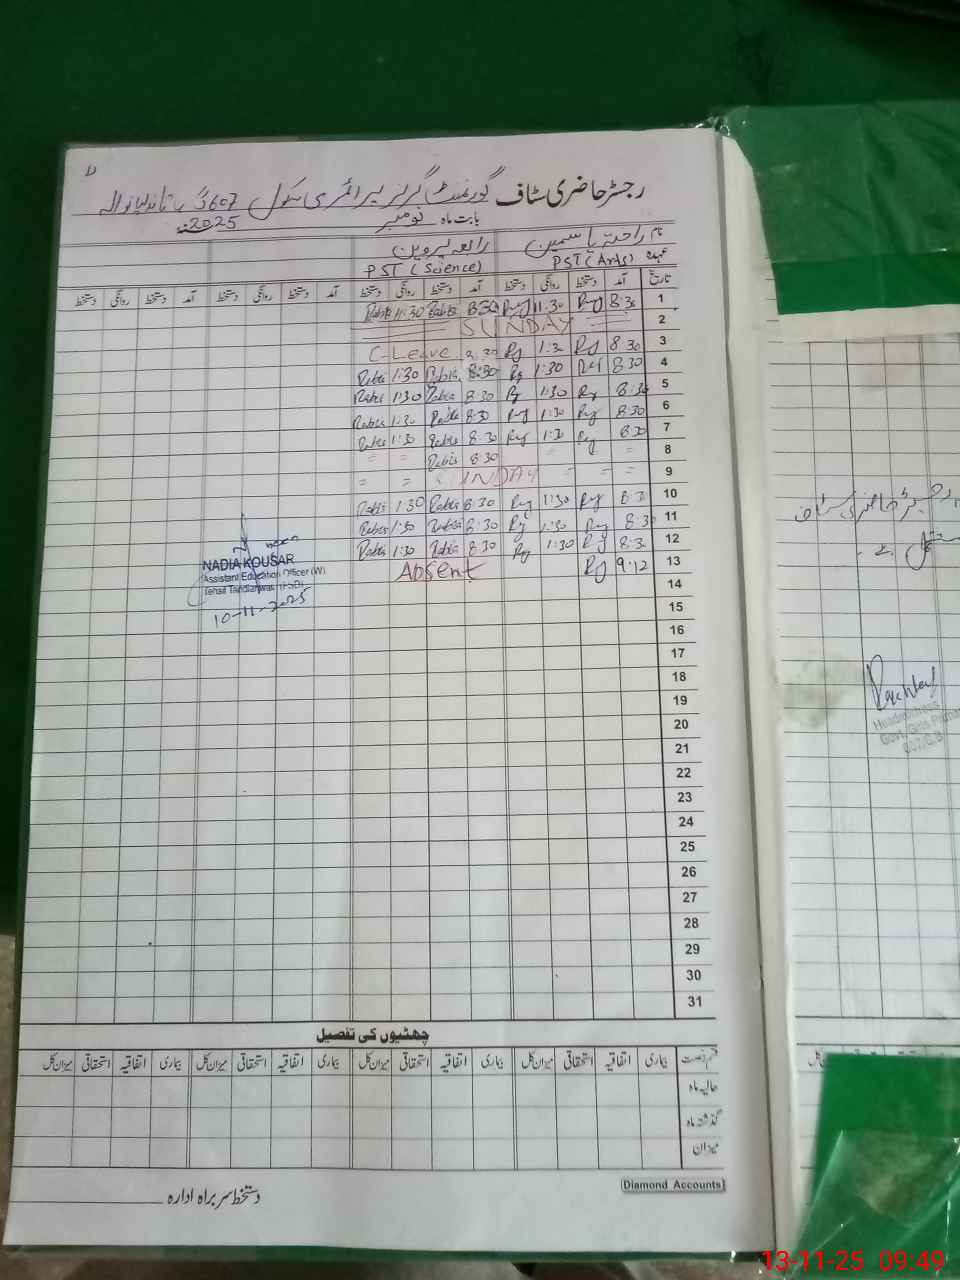 رجسٹر حاضری سٹاف گورنمنٹ گرلز پرائمری سکول 607 گ ب تاندلیانوالہ
بابت ماہ نومبر 2025ء
نام راحتہ یاسمین رابعہ پروین
عہدہ PST (Arts) PST (Science)
تاریخ آمد دستخط روانگی دستخط آمد دستخط روانگی دستخط آمد دستخط روانگی دستخط آمد دستخط روانگی دستخط
1 8:30 Ry 11:30 Ry 8:30 Rabia 11:30 Rabia
2 SUNDAY
3 8:30 Ry 1:30 Ry 8:30 C-Leave
4 8:30 Ry 1:30 Ry 8:30 Rabia 1:30 Rabia
5 8:30 Ry 1:30 Ry 8:30 Rabia 1:30 Rabia
6 8:30 Ry 1:30 Ry 8:30 Rabia 1:30 Rabia
7 8:30 Ry 1:30 Ry 8:30 Rabia 1:30 Rabia
8 = = = = 8:30 Rabia = =
9 = = = SUNDAY = =
10 8:30 Ry 1:30 Ry 8:30 Rabia 1:30 Rabia
11 8:30 Ry 1:30 Ry 8:30 Rabia 1:30 Rabia
12 8:30 Ry 1:30 Ry 8:30 Rabia 1:30 Rabia
13 9:12 Ry Absent
NADIA KOUSAR
Assistant Education Officer (W)
Tehsil Tandlianwala (FSD)
10-11-2025
14
15
16
17
18
19
20
21
22
23
24
25
26
27
28
29
30
31
چھٹیوں کی تفصیل
قسم رخصت بیماری اتفاقیہ استحقاقی میزان کل بیماری اتفاقیہ استحقاقی میزان کل بیماری اتفاقیہ استحقاقی میزان کل بیماری اتفاقیہ استحقاقی میزان کل
حالیہ ماہ
گذشتہ ماہ
میزان
دستخط سربراہ ادارہ
Diamond Accounts
رجسٹر حاضری سٹاف
Headmistress
Govt. Girls Primary
607/G.B
13-11-25 09:49